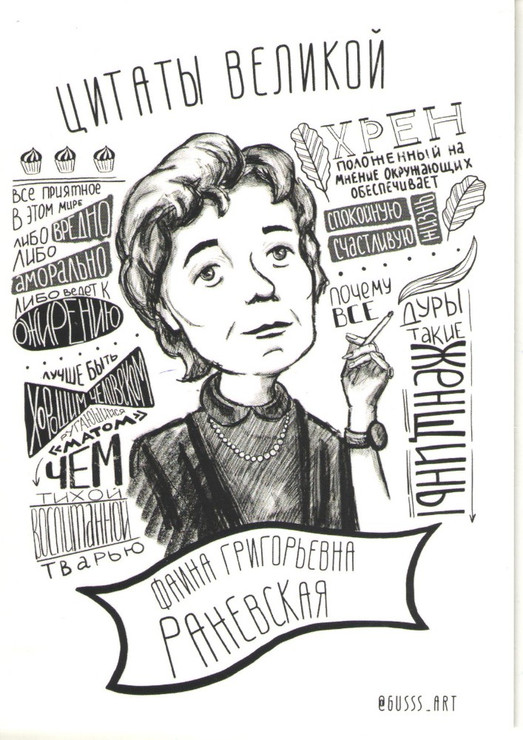 ЦИТАТЫ ВЕЛИКОЙ
ВСЕ ПРИЯТНОЕ
В ЭТОМ МИРЕ
ЛИБО ВРЕДНО
ЛИБО
АМОРАЛЬНО
ЛИБО ВЕДЕТ К
ОЖИРЕНИЮ
ЛУЧШЕ БЫТЬ
ХОРОШИМ ЧЕЛОВЕКОМ
РУГАЮЩИМСЯ
«МАТОМ»
ЧЕМ
ТИХОЙ
ВОСПИТАННОЙ
ТВАРЬЮ
ХРЕН
ПОЛОЖЕННЫЙ НА
МНЕНИЕ ОКРУЖАЮЩИХ
ОБЕСПЕЧИВАЕТ
СПОКОЙНУЮ
СЧАСТЛИВУЮ
ЖИЗНЬ
ПОЧЕМУ
ВСЕ
ДУРЫ
ТАКИЕ
ЖЕНЩИНЫ
ФАИНА ГРИГОРЬЕВНА
РАНЕВСКАЯ
@GUSSS_ART